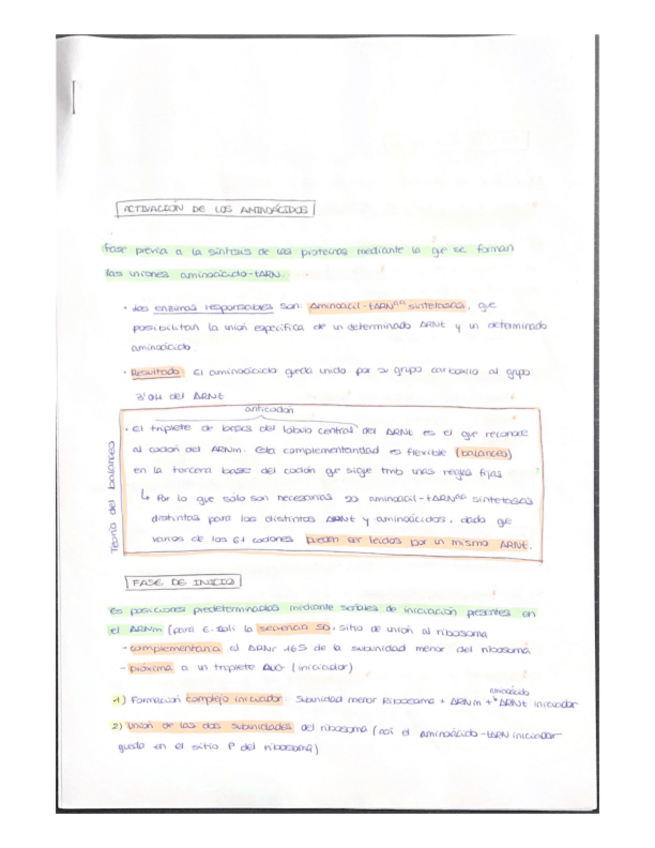 ACTIVACIÓN DE LOS AMINOÁCIDOS
Fase previa a la síntesis de las proteínas mediante la qe se forman
las uniones aminoácido-tARN.
· Los enzimas responsables son: Aminoacil-tARNᵃᵃ sintetasas, que
posibilitan la unión específica de un determinado ARNt y un determinado
aminoácido.
· Resultado: El aminoácido queda unido por su grupo carboxilo al grupo
3'OH del ARNt
anticodon
· El triplete de bases del lóbulo central del ARNt es el qe reconoce
al codón del ARNm. Esta complementaridad es flexible (balanceo)
en la tercera base del codón qe sigue tmb unas reglas fijas
↳ Por lo que sólo son necesarias 20 aminoacil-tARNᵃᵃ sintetasas
distintas para los distintos ARNt y aminoácidos, dado qe
varios de los 61 codones pueden ser leídos por un mismo ARNt.
Teoría del balanceo
FASE DE INICIO
Es posiciones predeterminadas mediante señales de iniciación presentes en
el ARNm (para E. Coli la secuencia SD, sitio de unión al ribosoma
- complementaria al ARNr 16S de la subunidad menor del ribosoma
- próxima a un triplete AUG (iniciador)
aminoácido
1) Formación complejo iniciador: Subunidad menor Ribosoma + ARNm + ARNt iniciador
2) Unión de las dos subunidades del ribosoma (así el aminoácido-tARN iniciador
queda en el sitio P del ribosoma)